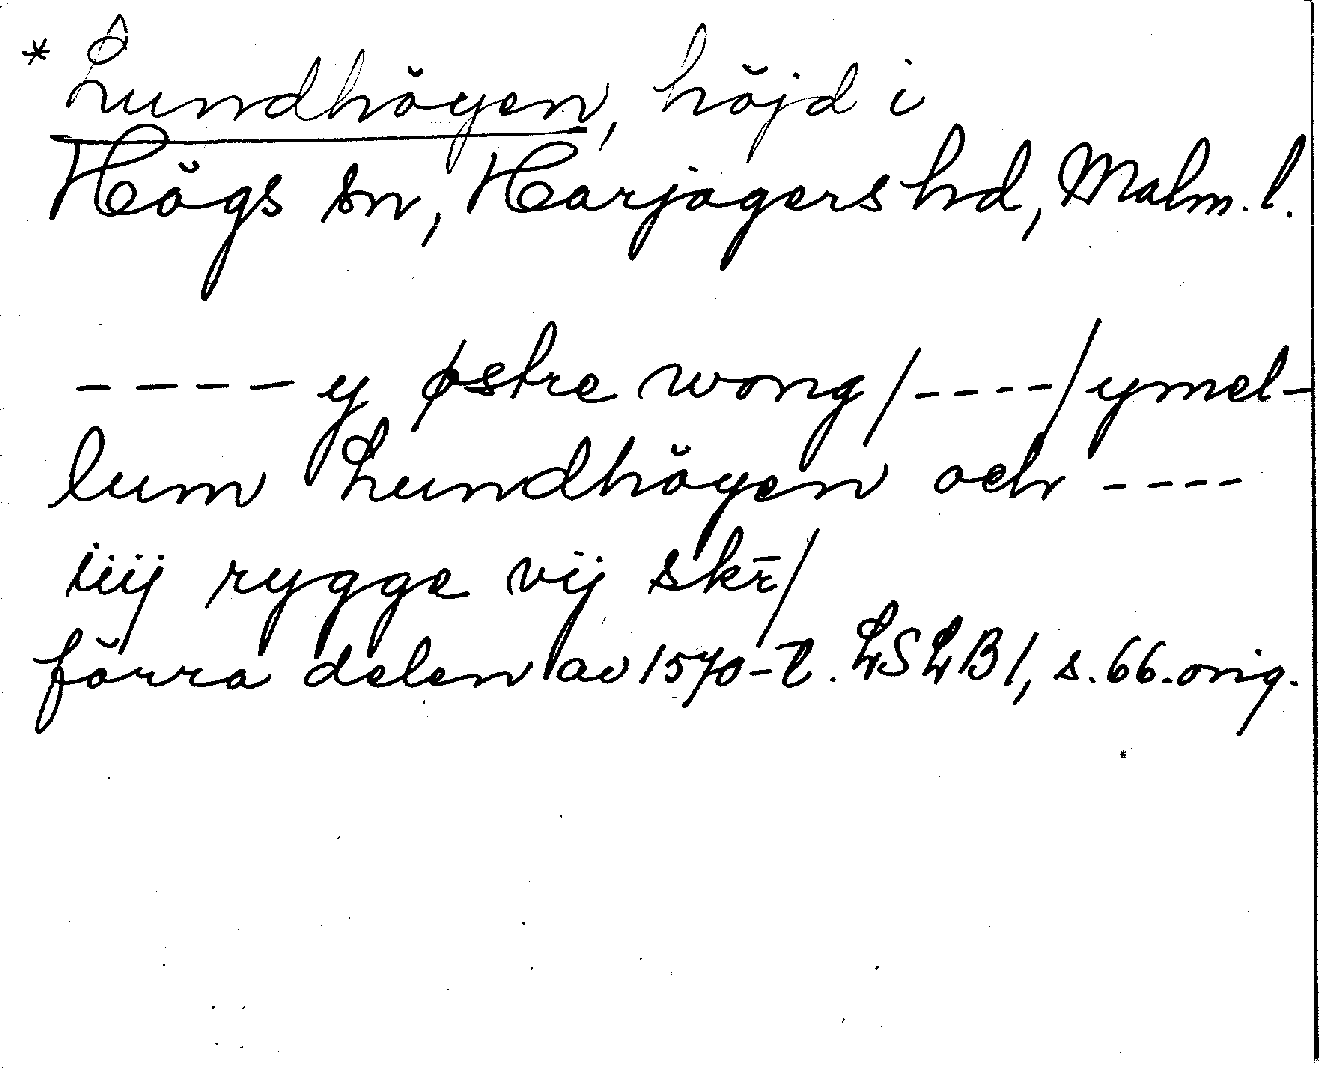 * Lundhöyen, höjd i
Högs sn, Harjagers hd, Malm. l.
---- y østre wong/----/ymel-
lum Lundhöyen och ----
iiij rygge vij skr̄/
förra delen av 1570-t. LSLB 1, s. 66. orig.